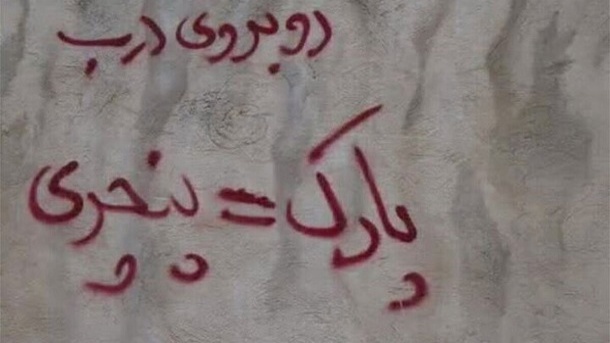 روبروی درب
پارک = پنچری